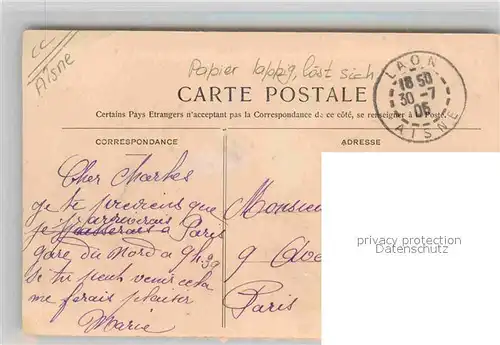 cc
Aisne
Papier lappig, löst sich
LAON
18 50
30 -7
05
AISNE
CARTE POSTALE
Certains Pays Etrangers n'acceptant pas la Correspondance de ce côté, se renseigner à la Poste.
CORRESPONDANCE
ADRESSE
Cher Charles
je te préviens que
j'arriverais
je passerais à Paris
gare du Nord à 9h 39
si tu peux venir cela
me ferais plaisir
Marie
Monsieur
9
Paris
privacy protection
www.ansichtskarten-center.de